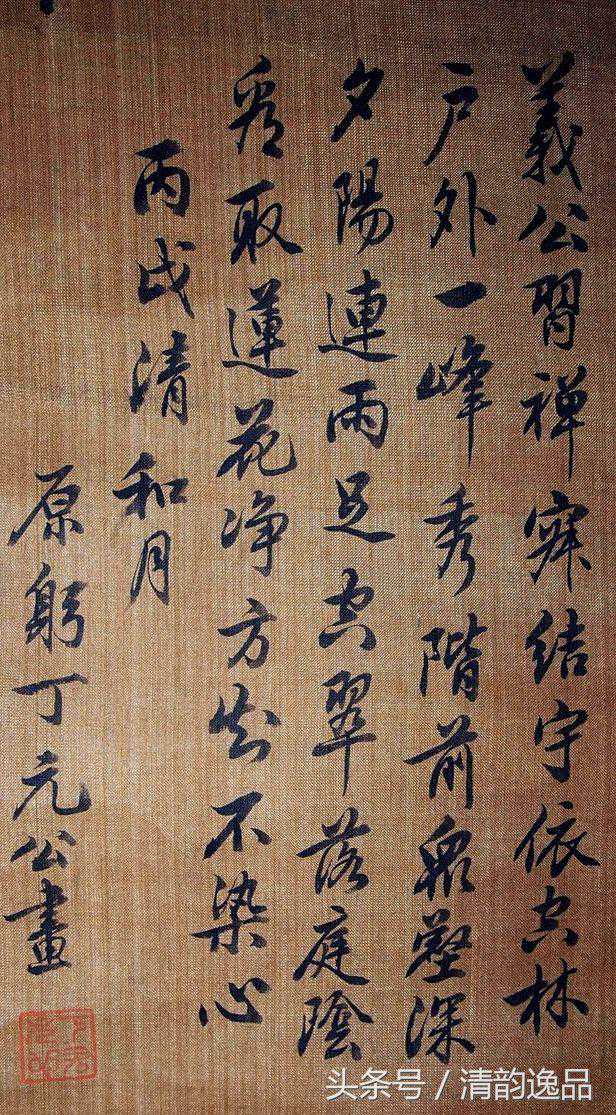 義公習禅寂結宇依空林
戶外一峰秀階前眾壑深
夕陽連雨足空翠落庭陰
看取蓮花净方知不染心
丙戌清和月
原躬丁元公畫
头条号 / 清韵逸品